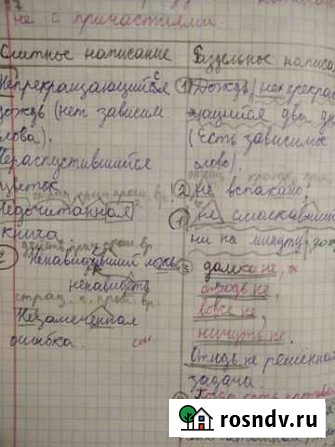 не с причастиями.
Слитное написание
Непрекращающийся
дождь (нет зависим
слова).
Нераспустившийся
цветок
Недочитанная
книга
Ненавидивший ложь
ненавидеть
страд. п. прош. вр.
Незамеченная
ошибка.
Раздельное написа
① Дождь, не прекра
щающийся два дня
(Есть зависимое
слово).
② не вспахано
① не смолкавший
ни на минуту, до
③ далеко не,
отнюдь не,
вовсе не,
ничуть не.
Отнюдь не решённая
задача.
rosndv.ru